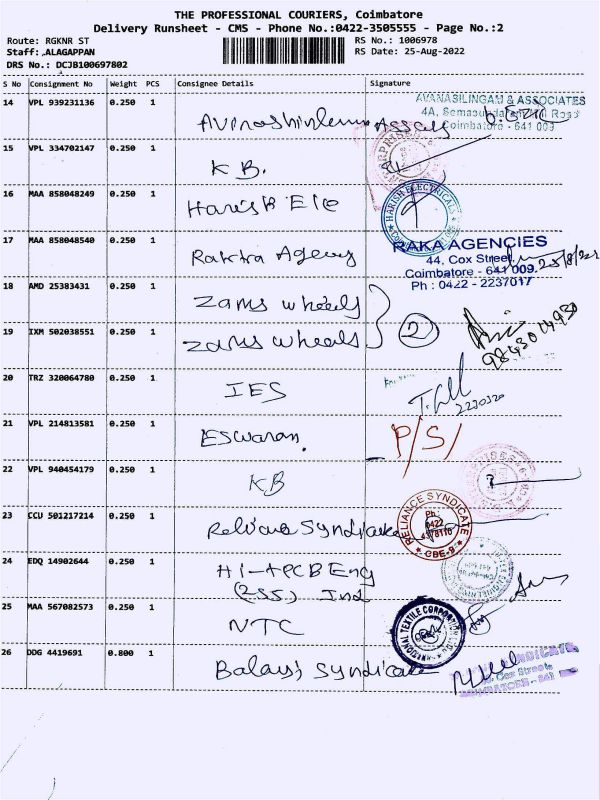 THE PROFESSIONAL COURIERS, Coimbatore
Delivery Runsheet - CMS - Phone No.:0422-3505555 - Page No.:2
Route: RGKNR ST
RS No.: 1006978
Staff: ALAGAPPAN
RS Date: 25-Aug-2022
DRS No.: DCJB100697802
S No Consignment No Weight PCS Consignee Details Signature
14 VPL 939231136 0.250 1
AVANASILINGAM & ASSOCIATES
4A,
Road
Coimbatore - 641 009
15 VPL 334702147 0.250 1
K B.
16 MAA 858048249 0.250 1
Harish Ele
HARISH ELECTRICALS
17 MAA 858048540 0.250 1
Agency
RAKA AGENCIES
44, Cox Street,
Coimbatore - 641 009.
25/8/22
Ph : 0422 - 2237017
18 AMD 25383431 0.250 1
Zams wheels
19 IXM 502038551 0.250 1
zams wheels
2
20 TRZ 320064780 0.250 1
IES
21 VPL 214813581 0.250 1
Eswaran.
P/S/
22 VPL 940454179 0.250 1
KB
23 CCU 501217214 0.250 1
Reliance Syndicate
RELIANCE SYNDICATE
Ph:
0422
CBE-9
24 EDQ 14902644 0.250 1
Eng
Ind
25 MAA 567082573 0.250 1
NTC
NATIONAL TEXTILE CORPORATION
26 DDG 4419691 0.800 1
Balaji Syndicate
SYNDICATE
Cox Street
COIMBATORE - 641